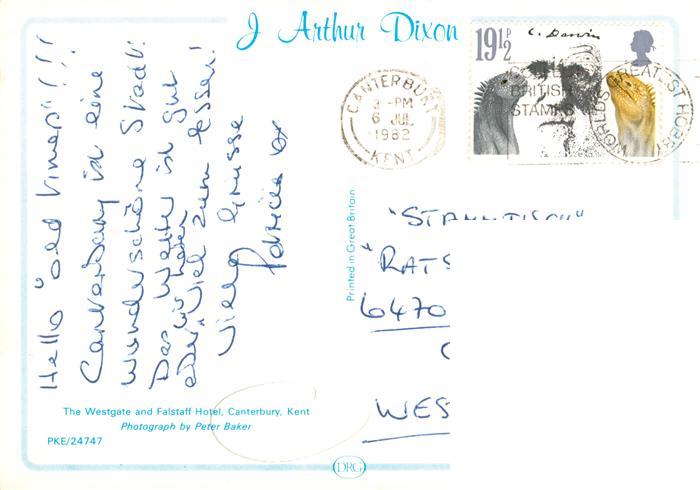 J Arthur Dixon
Hello "old Timers"!!!
Canterbury ist eine
wunderschöne Stadt!
Das Wetter ist gut
wir haben
viel zum Essen!
Viele Grüsse
Patricia
19½P
C. Darwin
CANTERBURY
3 - PM
6 JUL
1982
KENT
BRITISH
STAMPS
WORLD'S GREATEST HOBBY
Printed in Great Britain
"STAMMTISCH"
"RATS
6470
WES
The Westgate and Falstaff Hotel, Canterbury, Kent
Photograph by Peter Baker
PKE/24747
DRG